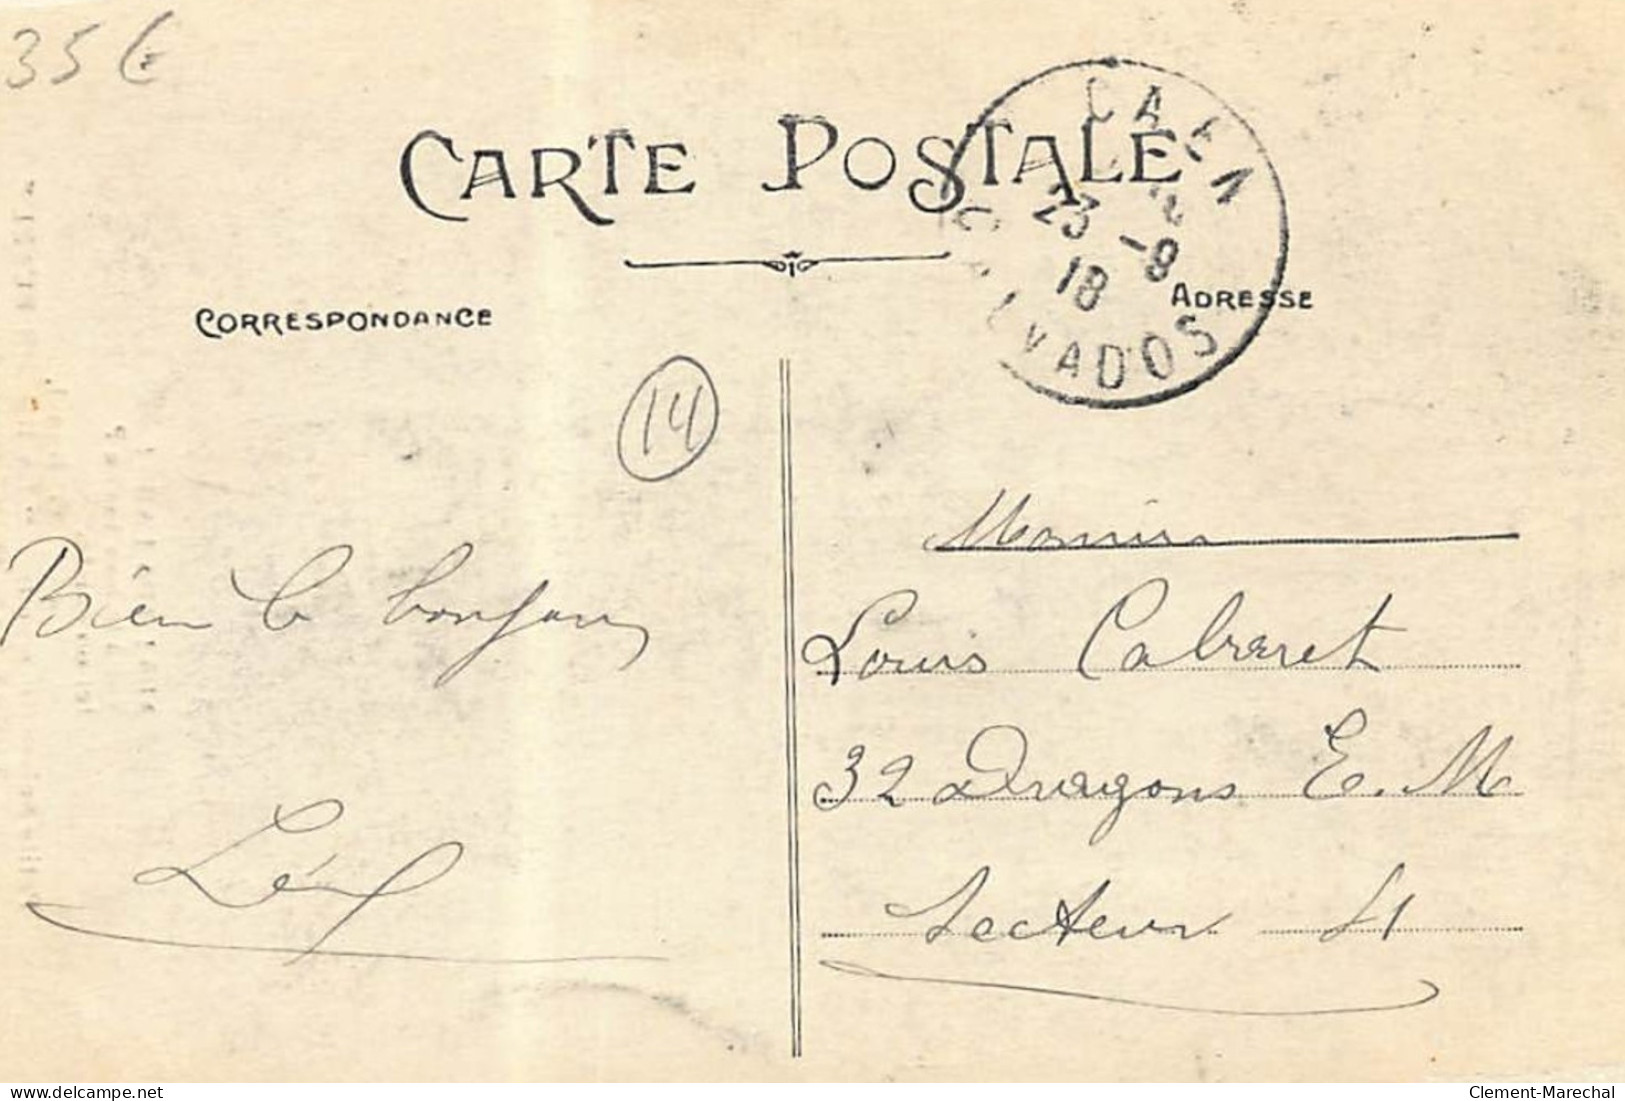 35 €
CARTE POSTALE
CAEN
23 -8
18
CALVADOS
CORRESPONDANCE
ADRESSE
14
Monsieur
Bien le bonjour
Louis Cabaret
32 Dragons E. M
Secteur
delcampe.net
Clement-Marechal